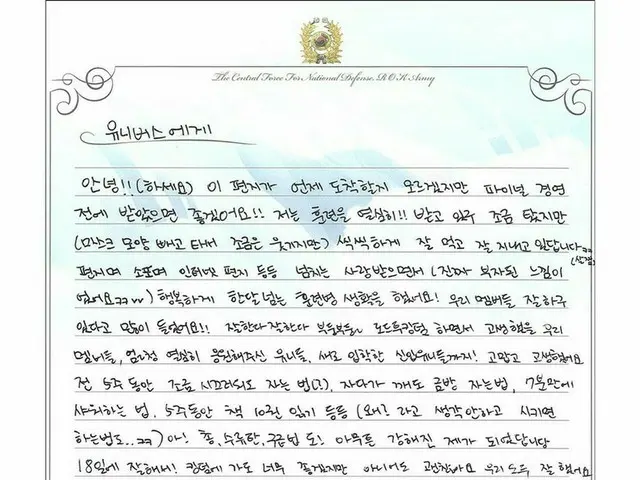 The Central Force For National Defense, R O K Army
유니버스에게
안녕!! (하세요) 이 편지가 언제 도착할지 모르겠지만 파이널 경연
전에 받았으면 좋겠어요!! 저는 훈련을 열심히!! 받고 와구 조금 탔지만
(마스크 모양 빼고 타서 조금은 웃기지만) 씩씩하게 잘 먹고 잘 지내고 있답니다ㅋㅋ
편지며 소포며 인터넷 편지 등등 넘치는 사랑받으면서 (진짜 부자된 느낌이
었어요ㅋㅋㅠ) 행복하게 한달 넘는 훈련병 생활을 했어요! 우리 멤버들 잘하구
있다고 많이 들었어요!! 잘한다잘한다 부둥부둥~ 로드투킹덤 하면서 고생했을 우리
멤버들, 엄청 열심히 응원해주신 유니들, 새로 입학한 신입유니들까지! 고맙고 고생했어요
전 5주 동안 조금 시끄러워도 자는 법(?), 자다가 깨도 금방 자는법, 7분만에
샤워하는 법, 5주동안 책 10권 읽기 등등 (왜? 라고 생각안하고 시키면
하는법도..ㅋㅋ) 아! 총, 수류탄, 구급법 도! 아무튼 강해진 제가 되었답니다
18일에 잘해서! 킹덤에 가도 너무 좋겠지만 아니어도 괜찮아요 우리도 잘 했어요